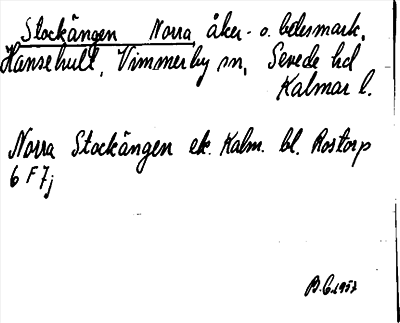 Stockängen Norra, åker- o. betesmark,
Hansehult, Vimmerby sn, Sevede hd
Kalmar l.
Norra Stockängen ek. Kalm. bl. Rostorp
6 F 7j
B.C. 1957